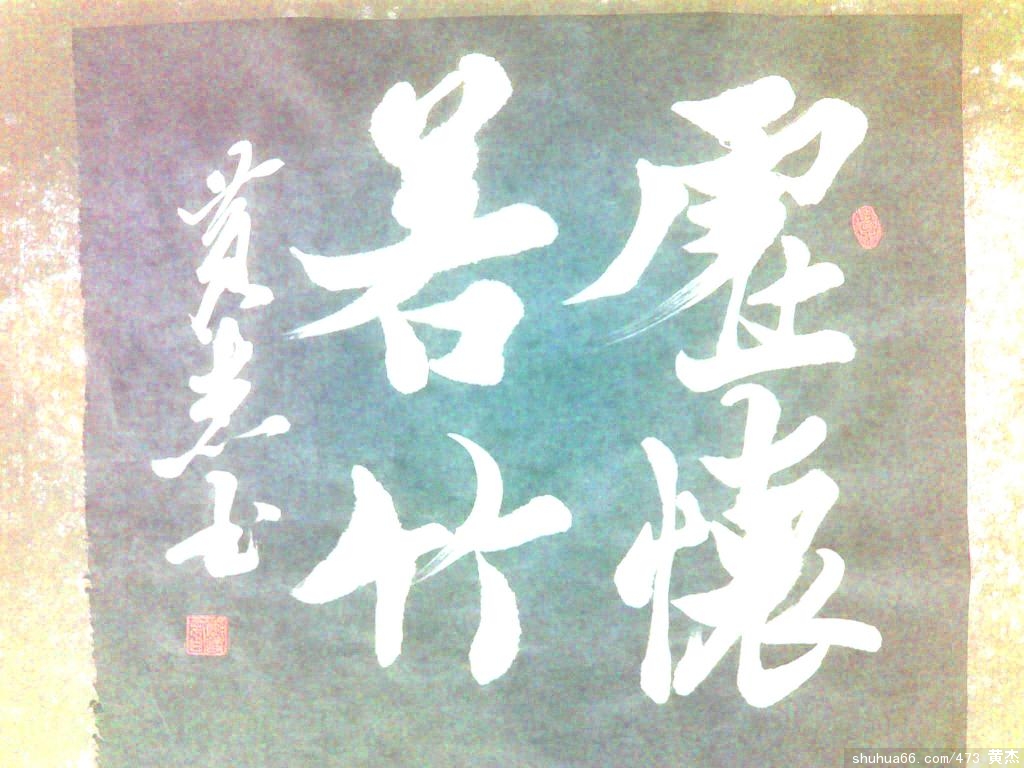 虚懷
若竹
黄
shuhua66.com/473 黄杰